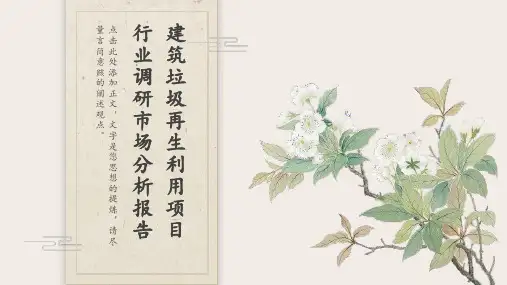 建筑垃圾再生利用项目
行业调研市场分析报告
点击此处添加正文，文字是您思想的提炼，请尽
量言简意赅的阐述观点。